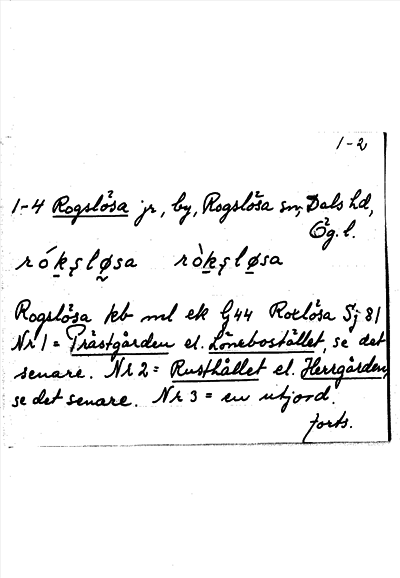 1-2
1-4 Rogslösa jr, by, Rogslösa sn, Dals hd,
Ög. l.
rókșløsa ròkșløsa
Rogslösa kb ml ek G44 Roxlösa Sj 81
Nr 1 = Prästgården el. Lönebostället, se det
senare. Nr 2 = Rusthållet el. Herrgården,
se det senare. Nr 3 = en utjord.
forts.